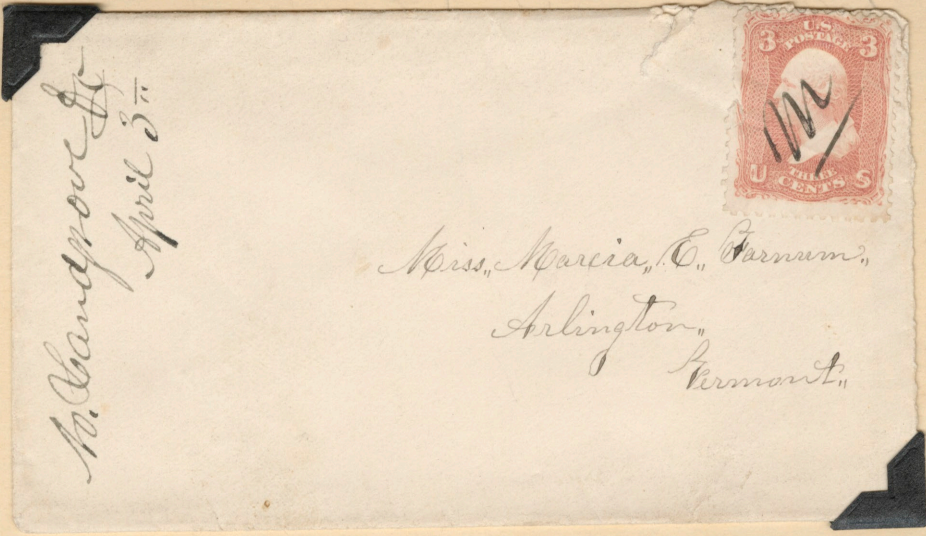 N. Landgrove Vt
April 3"
3 U.S. 3
POSTAGE
U THREE S
CENTS
Miss,, Marcia,, E,, Farnum,,
Arlington,,
Vermont,,